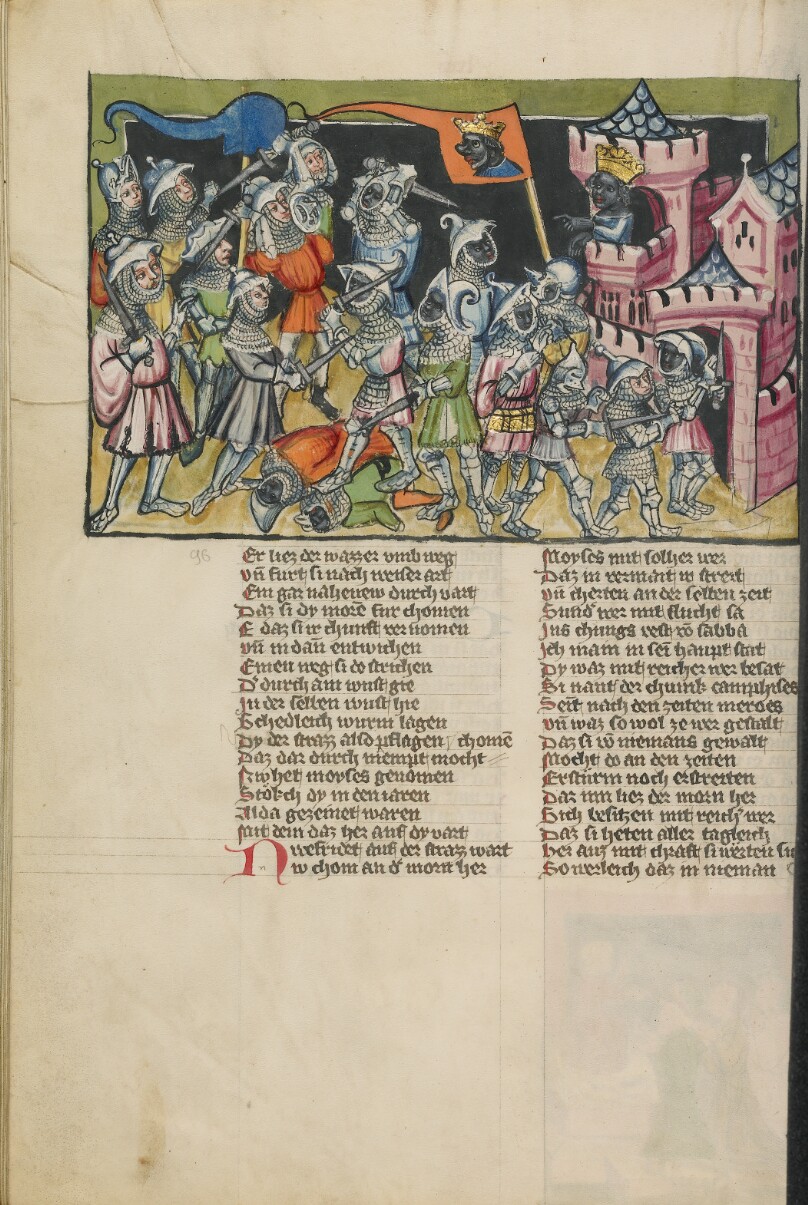 96
Er liez der wazzer vmb weg
vñ furt si nach weiser art
Ein gar naheuew durch vart
Daz si dy more fur chomen
E daz si ir chunft vernomen
vñ in dan entwichen
Einen weg si do strichen
D' durch ain wust gie
In der selben wust hie
Schedleich wurm lagen
Dy der strazz also pflagen
Daz dar durch niempt mocht chome
Nv het moyses genomen
Storch dy in den iaren
Alda gezemet waren
Mit dem daz her auf dy vart
wefridet auf der strazz wart
Nv chom an d' morn her
Moyses mit solher wer
Daz in vermait ir streit
vñ cherten an der selben zeit
Sund' wer mit flucht sa
Ins chungs vest vō sabba
Ich main in sein haupt stat
Dy waz mit reicher wer besat
Si nant der chunk camphises
Seit nach den zeiten meroes
vñ waz so wol ze wer gestalt
Daz si vō niemans gewalt
Mocht do an den zeiten
Ersturm noch erstreiten
Daz nm liez der morn her
Sich besitzen mit reich' wer
Daz si heten aller tagleich
her auz mit chraft si werten
So werleich daz in nieman